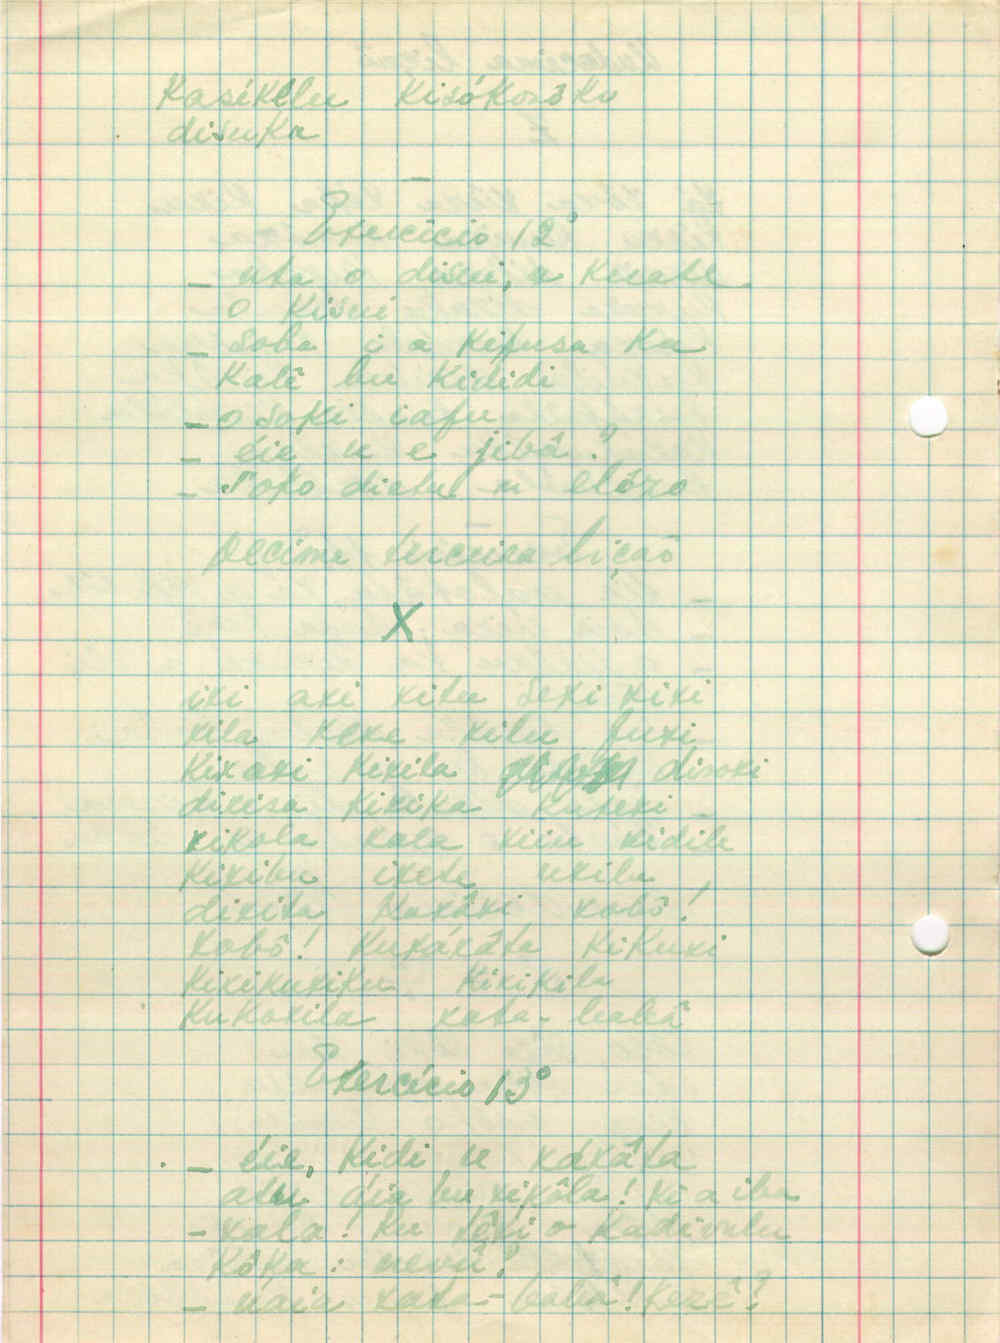 Kasikelu Kisókosóko
disuka
Exercício 12º
_ uta o disui, u kuate
o kisui
_ Soba i a kifusa ku
Kalê bu Kididi
_ o soki iafu
_ éie u e jibâ?
_ Poko diatu u elózo
Décima terceira lição
X
ixi axi xitu sexi xixi
xila kexe xilu fuxi
Kixaxi Kixila dixoxi
dixisa Kixika Kutexi
xikola xala xiiu xidilu
Kixibu ixete uxilu
dixita Maxáxi xobô!
xobô! Kuxáxáta Kikuxi
Kixikuxiku Kixikilu
Kukoxila xata-babâ
Exercício 13º
_ éie, Kidi u xaxâta
atu aia bu xikôla! Ki a iba
_ xala! ku tôxi o kadivulu
Kôka: uevu?
_ uaia xata-babâ! Kezê?